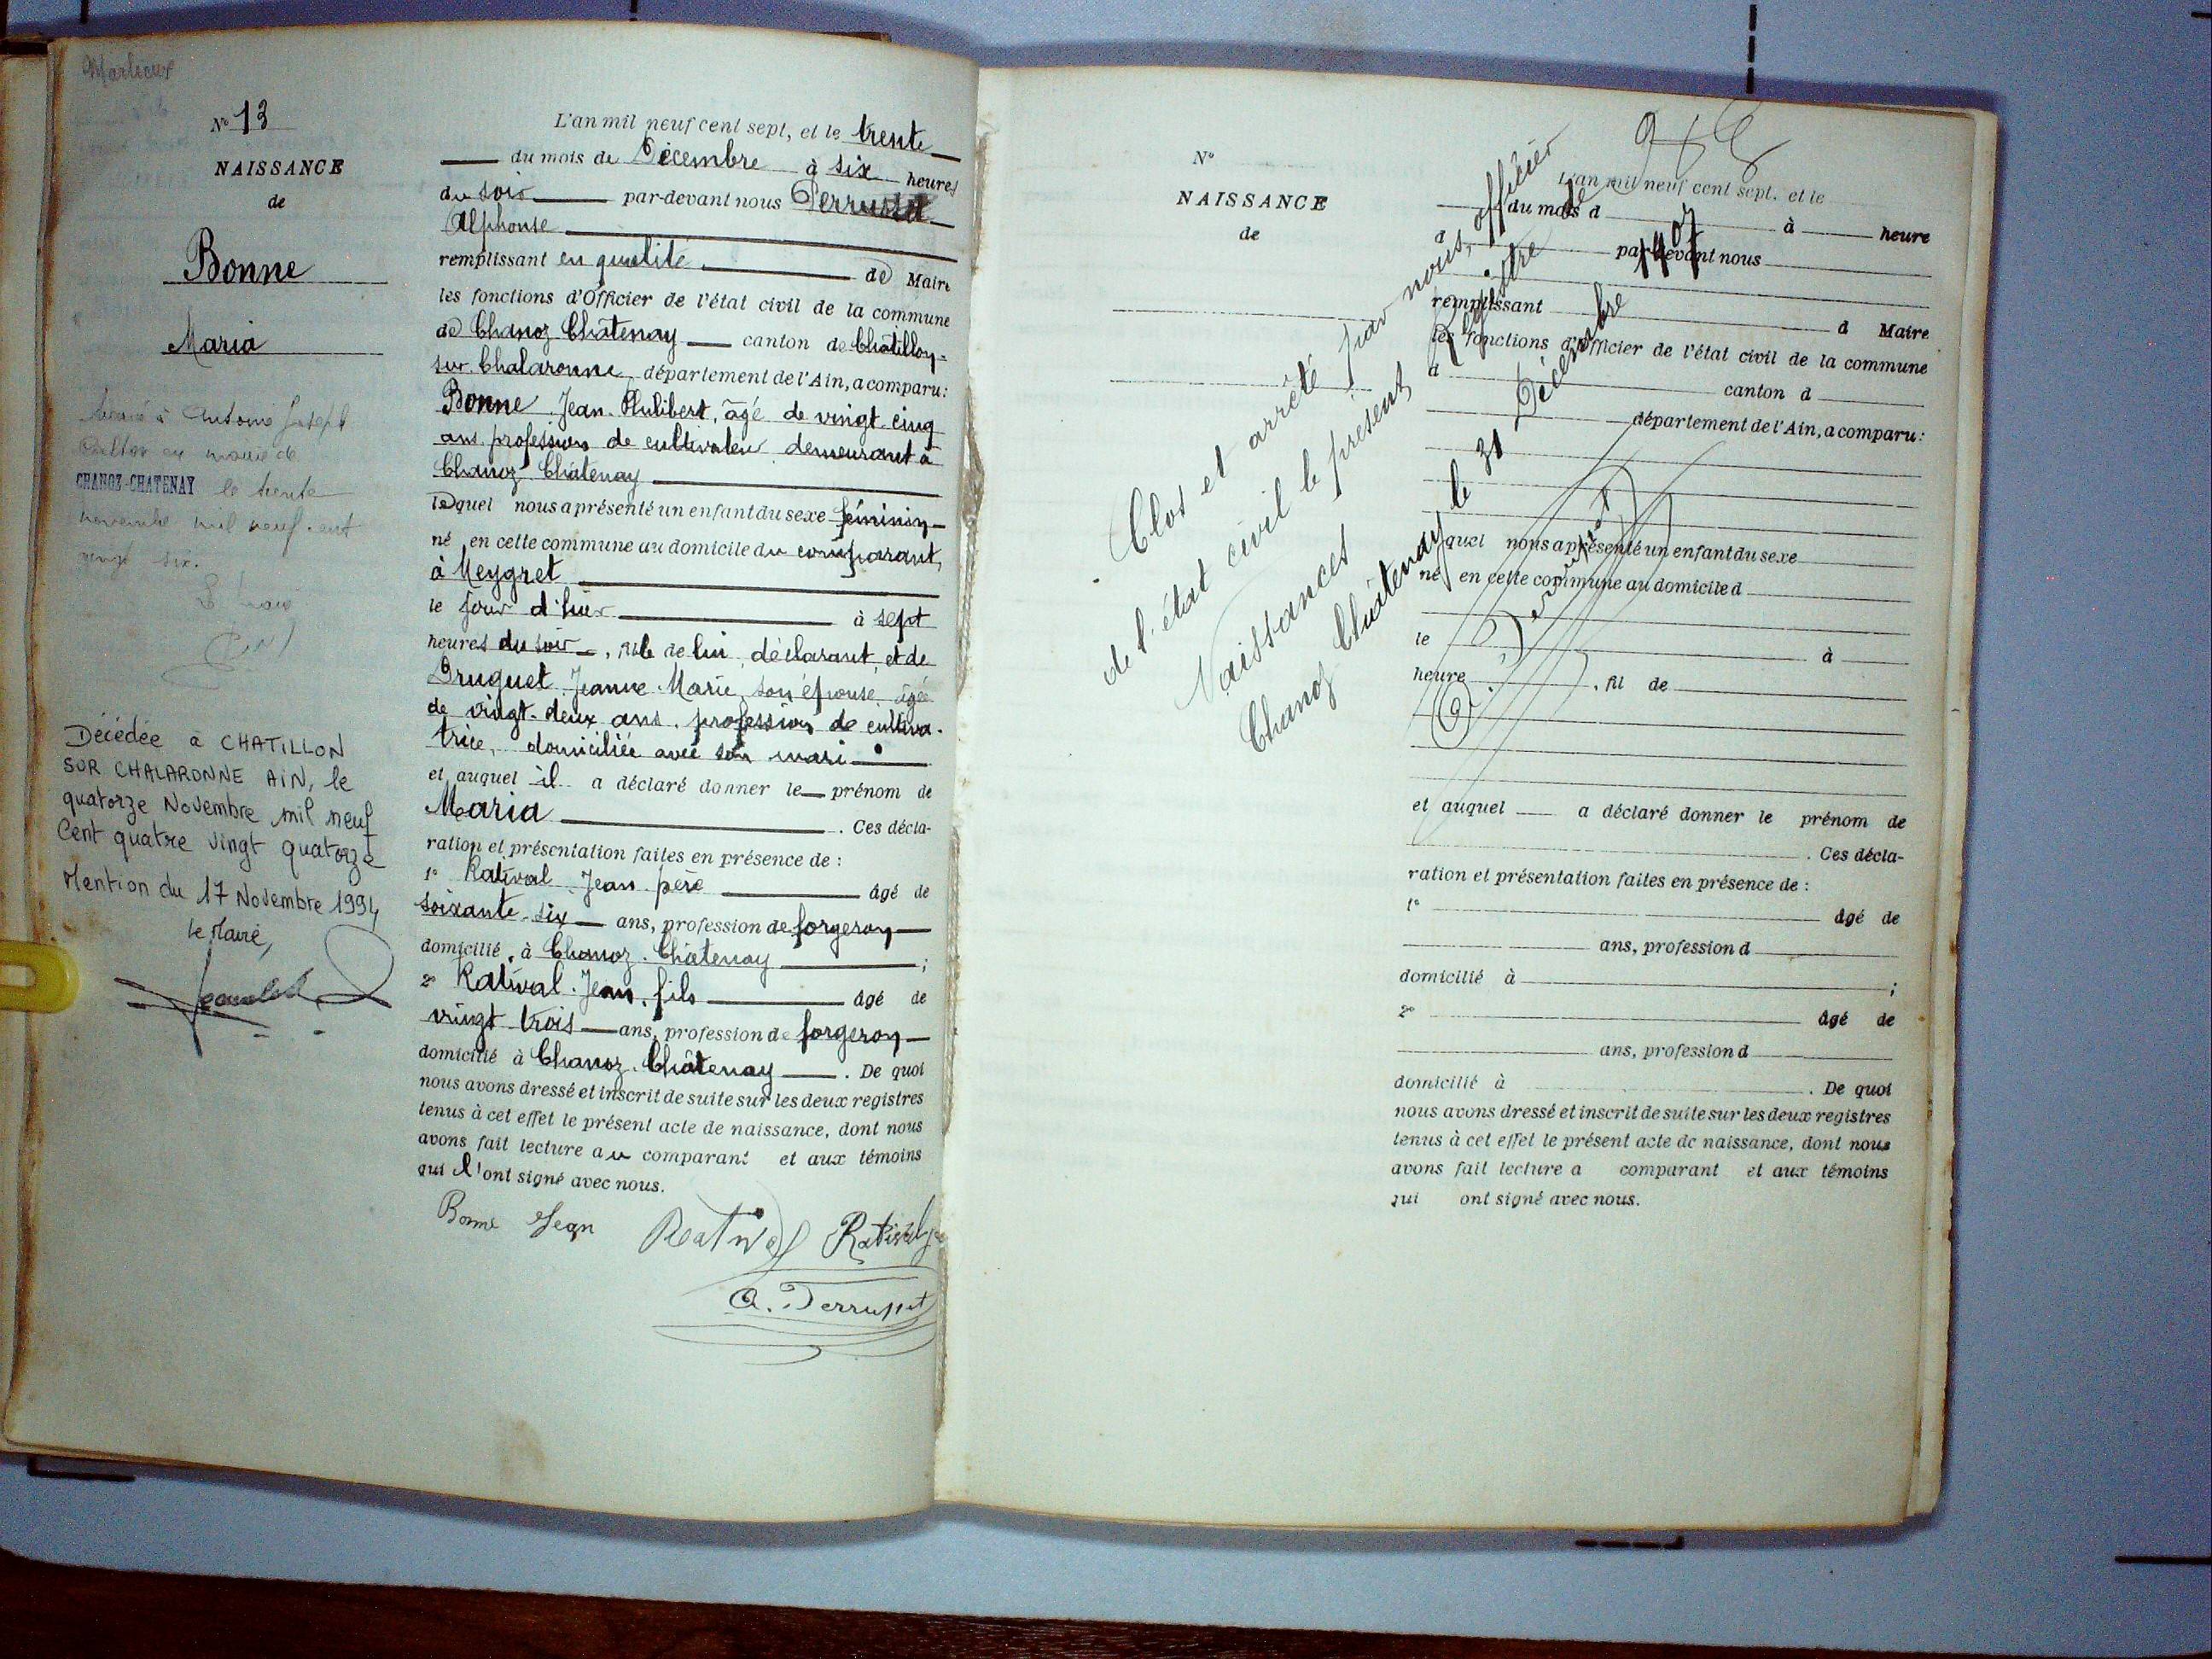 Marlieux
N° 13
NAISSANCE
de
Bonne
Maria
marié à Antoine Joseph
en mairie de
CHANOZ-CHATENAY le trente
novembre mil neuf cent
vingt six.
Décédée à CHATILLON
SUR CHALARONNE AIN, le
quatorze Novembre mil neuf
Cent quatre vingt quatorze
Mention du 17 Novembre 1994
le Maire,
L'an mil neuf cent sept, et le trente
du mois de Décembre à six heures
du soir par-devant nous Perrusset
Alphonse
remplissant en qualité de Maire
les fonctions d'Officier de l'état civil de la commune
de Chanoz Châtenay canton de Châtillon-
sur Chalaronne département de l'Ain, a comparu:
Bonne Jean Philibert, âgé de vingt cinq
ans, profession de cultivateur demeurant à
Chanoz Châtenay
lequel nous a présenté un enfant du sexe féminin
né en cette commune au domicile du comparant,
à Meygret
le jour d'hier à sept
heures du soir, fille de lui déclarant, et de
Druguet Jeanne Marie, son épouse, âgée
de vingt-deux ans, profession de cultiva-
trice, domiciliée avec son mari
et auquel il a déclaré donner le prénom de
Maria. Ces décla-
ration et présentation faites en présence de :
1° Ratival Jean père âgé de
soixante-six ans, profession de forgeron
domicilié à Chanoz-Châtenay ;
2° Ratival Jean, fils âgé de
vingt trois ans, profession de forgeron
domicilié à Chanoz-Châtenay. De quoi
nous avons dressé et inscrit de suite sur les deux registres
tenus à cet effet le présent acte de naissance, dont nous
avons fait lecture au comparant et aux témoins
qui l'ont signé avec nous.
Bonne Jean Ratival Ratival
A. Perrusset
N°
NAISSANCE
de
L'an mil neuf cent sept, et le
du mois d à heure
par-devant nous
remplissant d Maire
les fonctions d'Officier de l'état civil de la commune
d canton d
département de l'Ain, a comparu:
quel nous a présenté un enfant du sexe
né en cette commune au domicile d
le à
heure , fil de
et auquel a déclaré donner le prénom de
. Ces décla-
ration et présentation faites en présence de :
1° âgé de
ans, profession d
domicilié à ;
2° âgé de
ans, profession d
domicilié à . De quoi
nous avons dressé et inscrit de suite sur les deux registres
tenus à cet effet le présent acte de naissance, dont nous
avons fait lecture a comparant et aux témoins
qui ont signé avec nous.
Clos et arrêté par nous, officier
de l'état civil le présent Registre de
Naissances
Chanoz Châtenay le 31 Décembre 1907